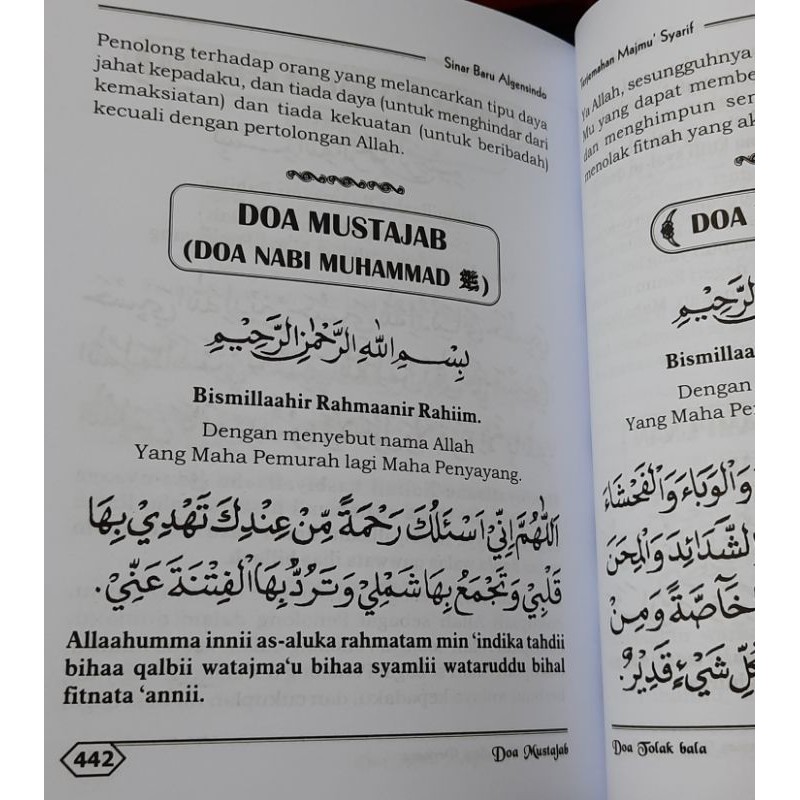 Sinar Baru Algensindo
Penolong terhadap orang yang melancarkan tipu daya
jahat kepadaku, dan tiada daya (untuk menghindar dari
kemaksiatan) dan tiada kekuatan (untuk beribadah)
kecuali dengan pertolongan Allah.
DOA MUSTAJAB
(DOA NABI MUHAMMAD ﷺ)
بِسْمِ اللهِ الرَّحْمٰنِ الرَّحِيْمِ
Bismillaahir Rahmaanir Rahiim.
Dengan menyebut nama Allah
Yang Maha Pemurah lagi Maha Penyayang.
اَللّٰهُمَّ اِنِّيْ اَسْئَلُكَ رَحْمَةً مِّنْ عِنْدِكَ تَهْدِيْ بِهَا
قَلْبِيْ وَتَجْمَعُ بِهَا شَمْلِيْ وَتَرُدُّ بِهَا الْفِتْنَةَ عَنِّيْ.
Allaahumma innii as-aluka rahmatam min ‘indika tahdii
bihaa qalbii watajma‘u bihaa syamlii wataruddu bihal
fitnata ‘annii.
442
Doa Mustajab
Terjemahan Majmu' Syarif
Ya Allah, sesungguhnya
Mu yang dapat membe
dan menghimpun sem
menolak fitnah yang ak
DOA
الرَّحِيْمِ
Bismillaa
Dengan
Yang Maha Pe
وَالْوَبَاءَ وَالْفَحْشَاءَ
الشَّدَائِدَ وَالْمِحَنَ
خَاصَّةً وَمِنْ
كُلِّ شَيْءٍ قَدِيْرٌ.
Doa Tolak bala